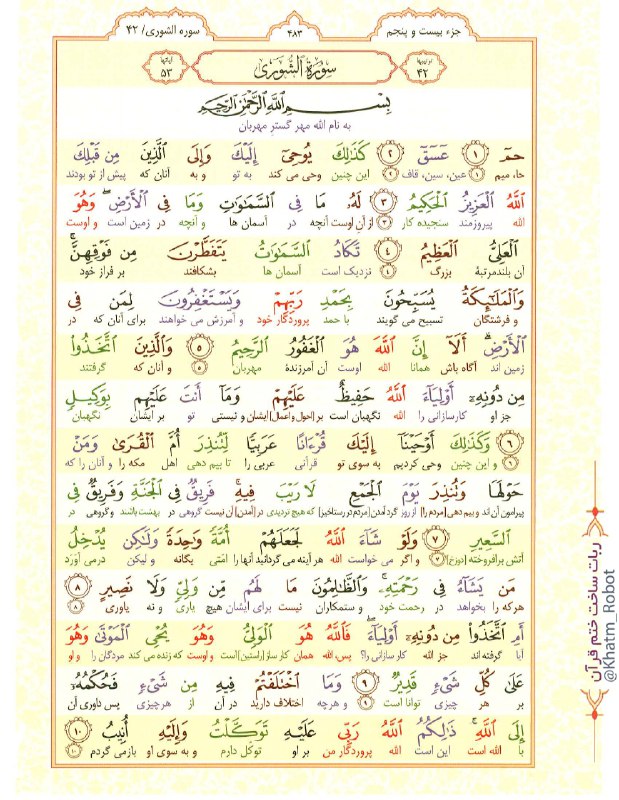 جزء بیست و پنجم
۴۸۳
سوره الشوری/ ۴۲
۴۲
سورة الشورى
۵۳
بِسْمِ اللَّهِ الرَّحْمٰنِ الرَّحِيمِ
به نام الله مهر گستر مهربان
حمٓ ١ عٓسٓقٓ ٢ كَذَٰلِكَ يُوحِىٓ إِلَيْكَ وَإِلَى الَّذِينَ مِن قَبْلِكَ
حا، میم ۱ عین، سین، قاف ۲ این چنین وحی می کند به تو و به آنان که پیش از تو بودند
اللَّهُ الْعَزِيزُ الْحَكِيمُ ٣ لَهُۥ مَا فِى السَّمَـٰوَاتِ وَمَا فِى الْأَرْضِ ۖ وَهُوَ
الله پیروزمند سنجیده کار ۳ از آنِ اوست آنچه در آسمان ها و آنچه در زمین است و اوست
الْعَلِىُّ الْعَظِيمُ ٤ تَكَادُ السَّمَـٰوَاتُ يَتَفَطَّرْنَ مِن فَوْقِهِنَّ ۚ
آن بلندمرتبهٔ بزرگ ۴ نزدیک است آسمان ها بشکافند بر فراز خود
وَالْمَلَـٰٓئِكَةُ يُسَبِّحُونَ بِحَمْدِ رَبِّهِمْ وَيَسْتَغْفِرُونَ لِمَن فِى
و فرشتگان تسبیح می گویند با حمد پروردگار خود و آمرزش می خواهند برای آنان که در
الْأَرْضِ ۗ أَلَآ إِنَّ اللَّهَ هُوَ الْغَفُورُ الرَّحِيمُ ٥ وَالَّذِينَ اتَّخَذُوا
زمین اند آگاه باش همانا الله اوست آن آمرزندهٔ مهربان ۵ و آنان که گرفتند
مِن دُونِهِۦٓ أَوْلِيَآءَ اللَّهُ حَفِيظٌ عَلَيْهِمْ وَمَآ أَنتَ عَلَيْهِم بِوَكِيلٍ
جز او کارسازانی را الله نگهبان است بر [احوال و اعمال] ایشان و نیستی تو بر ایشان نگهبان
٦ وَكَذَٰلِكَ أَوْحَيْنَآ إِلَيْكَ قُرْءَانًا عَرَبِيًّا لِّتُنذِرَ أُمَّ الْقُرَىٰ وَمَنْ
۶ و این چنین وحی کردیم به سوی تو قرآنی عربی را تا بیم دهی اهل مکه را و آنان را که
حَوْلَهَا وَتُنذِرَ يَوْمَ الْجَمْعِ لَا رَيْبَ فِيهِ ۚ فَرِيقٌ فِى الْجَنَّةِ وَفَرِيقٌ فِى
پیرامون آن اند و بیم دهی [مردم را] از روز گردآمدن [مردم در رستاخیز] که هیچ تردیدی در [آمدن] آن نیست گروهی در بهشت باشند و گروهی در
السَّعِيرِ ٧ وَلَوْ شَآءَ اللَّهُ لَجَعَلَهُمْ أُمَّةً وَٰحِدَةً وَلَـٰكِن يُدْخِلُ
آتش برافروخته [دوزخ] ۷ و اگر می خواست الله هر آینه می گردانید آنها را امّتی یگانه و لیکن درمی آورَد
مَن يَشَآءُ فِى رَحْمَتِهِۦ ۚ وَالظَّـٰلِمُونَ مَا لَهُم مِّن وَلِىٍّ وَلَا نَصِيرٍ ٨
هرکه را بخواهد در رحمت خود و ستمکاران نیست برای ایشان هیچ یاری و نه یاوری ۸
أَمِ اتَّخَذُوا مِن دُونِهِۦٓ أَوْلِيَآءَ ۖ فَاللَّهُ هُوَ الْوَلِىُّ وَهُوَ يُحْىِ الْمَوْتَىٰ وَهُوَ
آیا گرفته اند جز الله کارسازانی را؟ پس، الله همان کارساز [راستین] است و اوست که زنده می کند مردگان را و او
عَلَىٰ كُلِّ شَىْءٍ قَدِيرٌ ٩ وَمَا اخْتَلَفْتُمْ فِيهِ مِن شَىْءٍ فَحُكْمُهُۥٓ
بر هر چیزی توانا است ۹ و هرچه اختلاف دارید در آن از هرچیزی پس داوری آن
إِلَى اللَّهِ ۚ ذَٰلِكُمُ اللَّهُ رَبِّى عَلَيْهِ تَوَكَّلْتُ وَإِلَيْهِ أُنِيبُ ١٠
با الله است این است الله پروردگار من بر او توکل دارم و به سوی او بازمی گردم ۱۰
ربات ساخت ختم قرآن
@Khatm_Robot